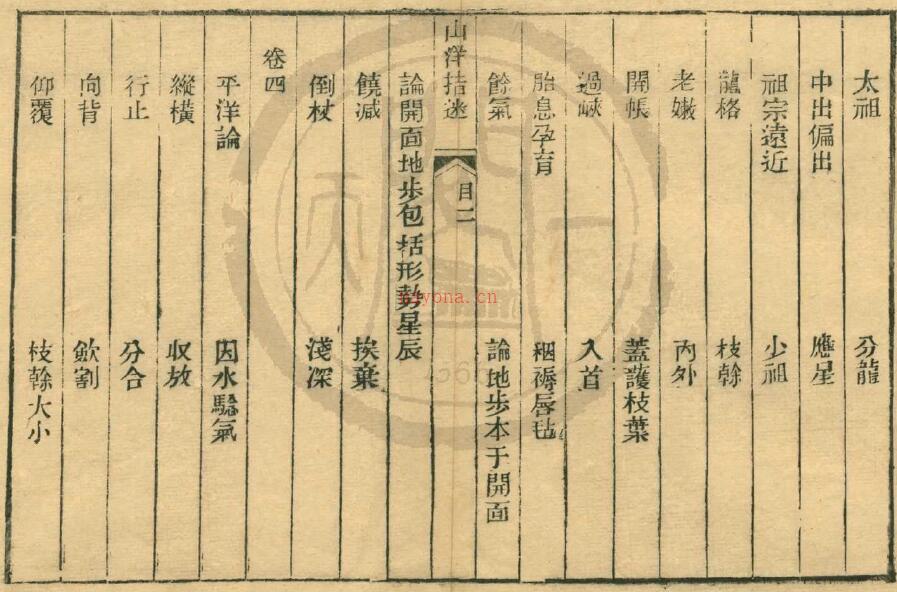 太祖　分龍
中出偏出　應星
祖宗遠近　少祖
龍格　枝榦
老嫩　內外
開帳　蓋護枝葉
過峽　入首
胎息孕育　裀褥唇毡
餘氣　論地步本于開面
山洋指迷　目二
論開面地步包括形勢星辰
饒减　挨棄
倒杖　淺深
卷四
平洋論　因水騐氣
縱橫　収放
行止　分合
向背　歛割
仰覆　枝榦大小
nayona.cn